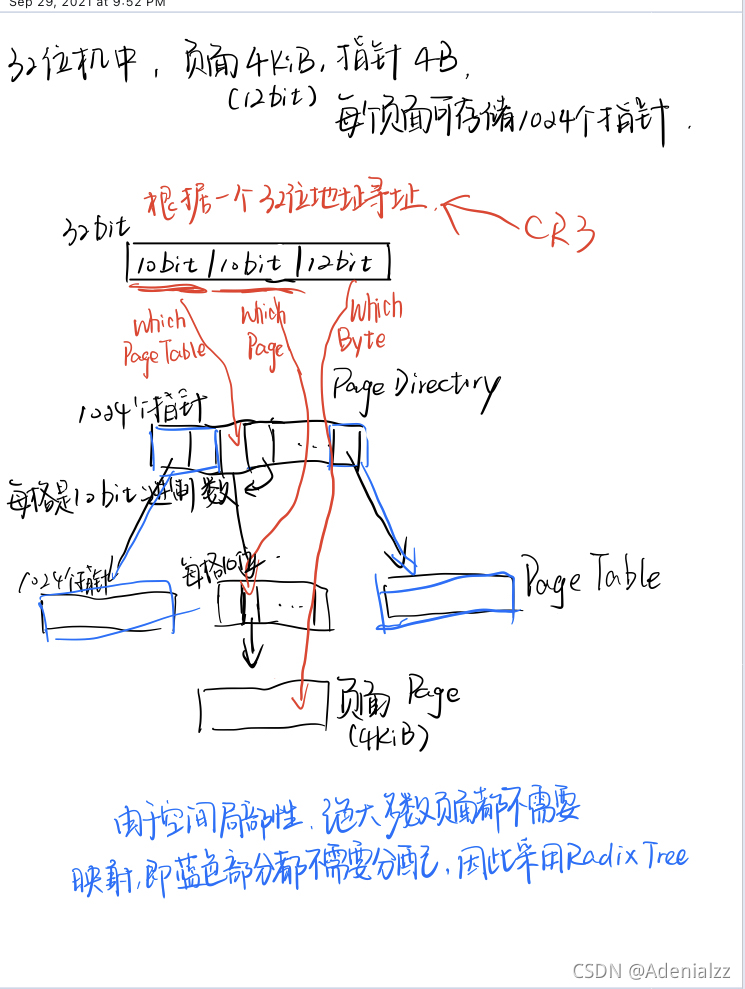 Sep 29, 2021 at 9:52 PM
32位机中, 页面4KiB, 指针 4B,
(12bit)
每个页面可存储1024个指针.
根据一个32位地址寻址.
CR3
32bit
10bit | 10bit | 12bit
Which
Page Table
Which
Page
Which
Byte
Page Directiry
1024个指针
...
每格是10bit二进制数
1024个指针
每格10位
...
Page Table
页面 Page
(4KiB)
由于空间局部性, 绝大多数页面都不需要
映射, 即蓝色部分都不需要分配, 因此采用Radix Tree
CSDN @Adenialzz